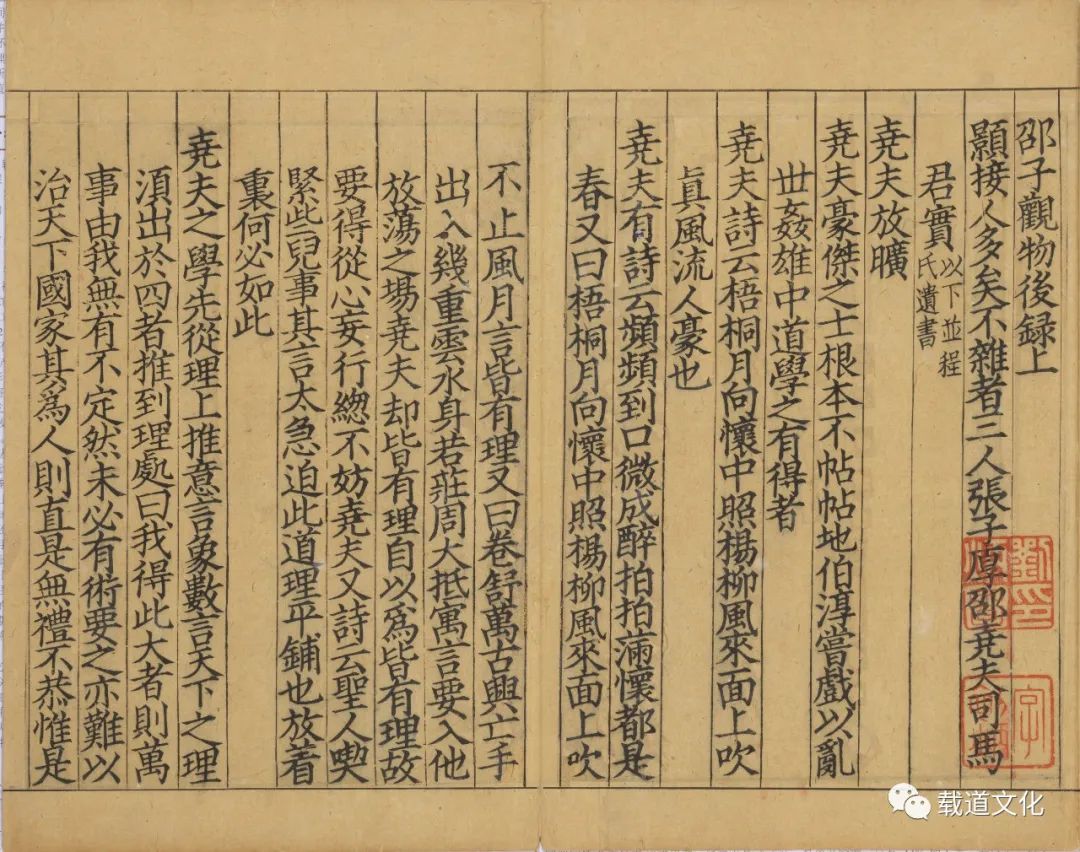 邵子觀物後録上
顥接人多矣不雜者三人張子厚邵堯夫司馬
君實以下並程
氏遺書
堯夫放曠
堯夫豪傑之士根本不帖帖地伯淳嘗戲以亂
世姦雄中道學之有得者
堯夫詩云梧桐月向懷中照楊柳風來面上吹
眞風流人豪也
堯夫有詩云頻頻到口微成醉拍拍滿懷都是
春又曰梧桐月向懷中照楊柳風來面上吹
不止風月言皆有理又曰卷舒萬古興亡手
出入幾重雲水身若莊周大抵寓言要入他
放蕩之場堯夫却皆有理自以爲皆有理故
要得從心妄行緫不妨堯夫又詩云聖人喫
緊些兒事其言大急迫此道理平鋪也放着
裏何必如此
堯夫之學先從理上推意言象數言天下之理
湏出於四者推到理處曰我得此大者則萬
事由我無有不定然未必有術要之亦難以
治天下國家其爲人則直是無禮不恭惟是
载道文化